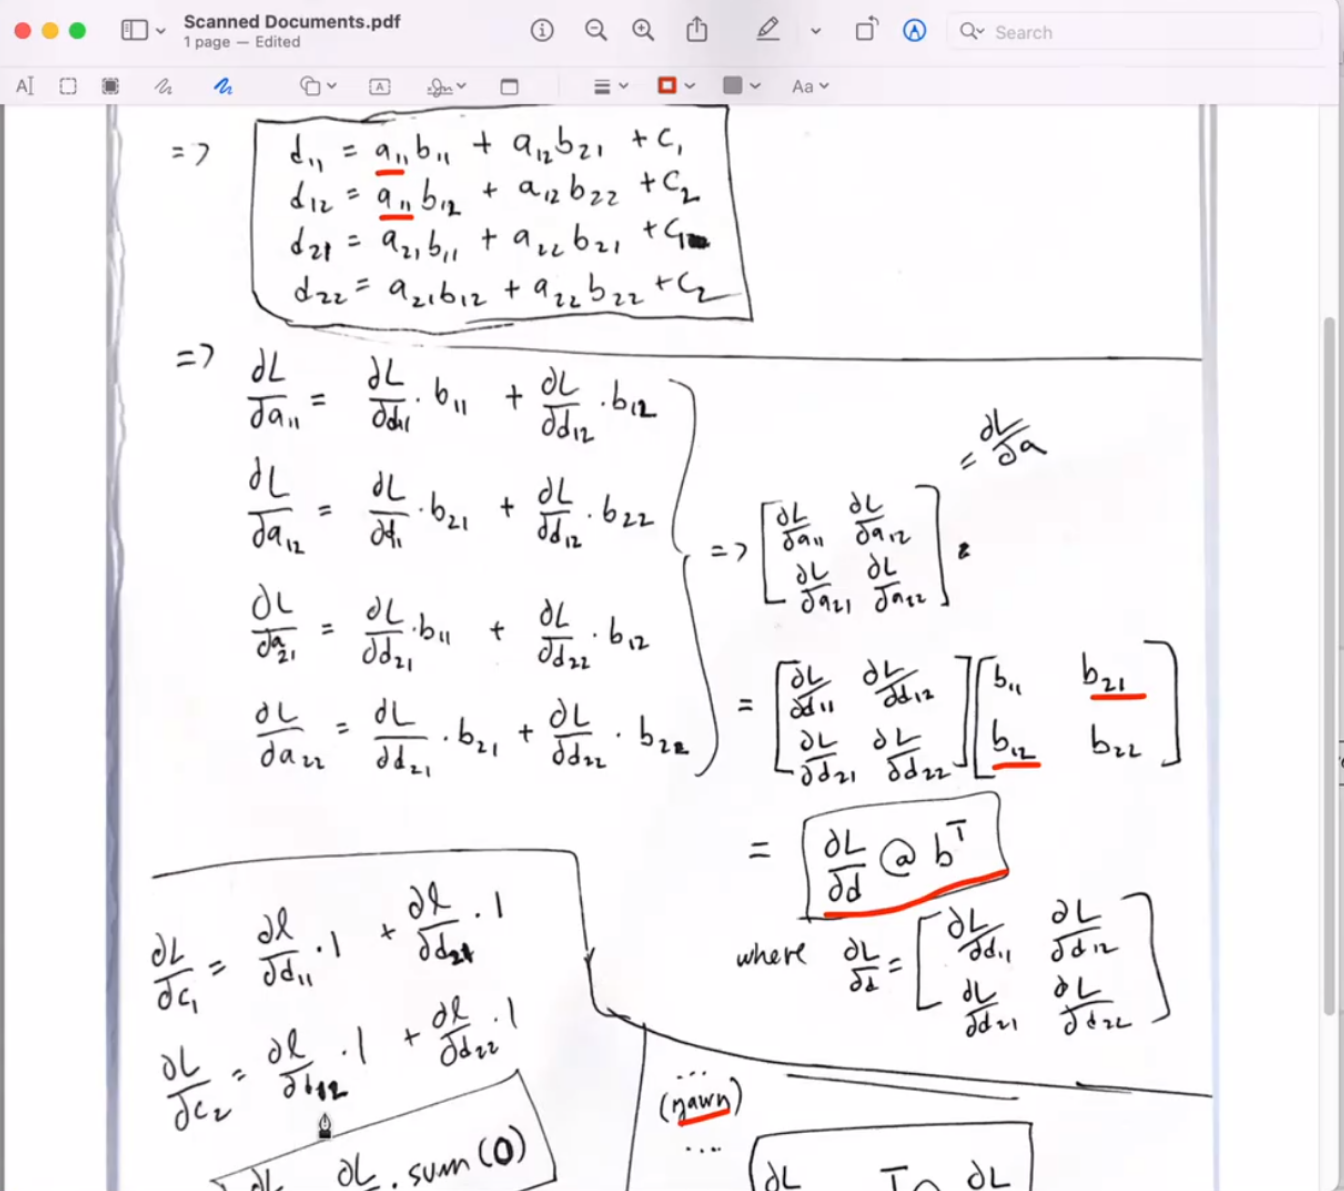 Scanned Documents.pdf
1 page — Edited
Search
Aa
=> d₁₁ = a₁₁b₁₁ + a₁₂b₂₁ + c₁
d₁₂ = a₁₁b₁₂ + a₁₂b₂₂ + c₂
d₂₁ = a₂₁b₁₁ + a₂₂b₂₁ + c₁
d₂₂ = a₂₁b₁₂ + a₂₂b₂₂ + c₂
=> ∂L/∂a₁₁ = ∂L/∂d₁₁ · b₁₁ + ∂L/∂d₁₂ · b₁₂
∂L/∂a₁₂ = ∂L/∂d₁₁ · b₂₁ + ∂L/∂d₁₂ · b₂₂
∂L/∂a₂₁ = ∂L/∂d₂₁ · b₁₁ + ∂L/∂d₂₂ · b₁₂
∂L/∂a₂₂ = ∂L/∂d₂₁ · b₂₁ + ∂L/∂d₂₂ · b₂₂
= ∂L/∂a
=> [ ∂L/∂a₁₁ ∂L/∂a₁₂
∂L/∂a₂₁ ∂L/∂a₂₂ ]
= [ ∂L/∂d₁₁ ∂L/∂d₁₂ ] [ b₁₁ b₂₁
∂L/∂d₂₁ ∂L/∂d₂₂ ] b₁₂ b₂₂ ]
= ∂L/∂d @ bᵀ
where ∂L/∂d = [ ∂L/∂d₁₁ ∂L/∂d₁₂
∂L/∂d₂₁ ∂L/∂d₂₂ ]
∂L/∂c₁ = ∂l/∂d₁₁ · 1 + ∂l/∂d₂₁ · 1
∂L/∂c₂ = ∂l/∂d₁₂ · 1 + ∂l/∂d₂₂ · 1
∂L ∂L . sum(0)
...
(yawn)
....
∂L T ∂L